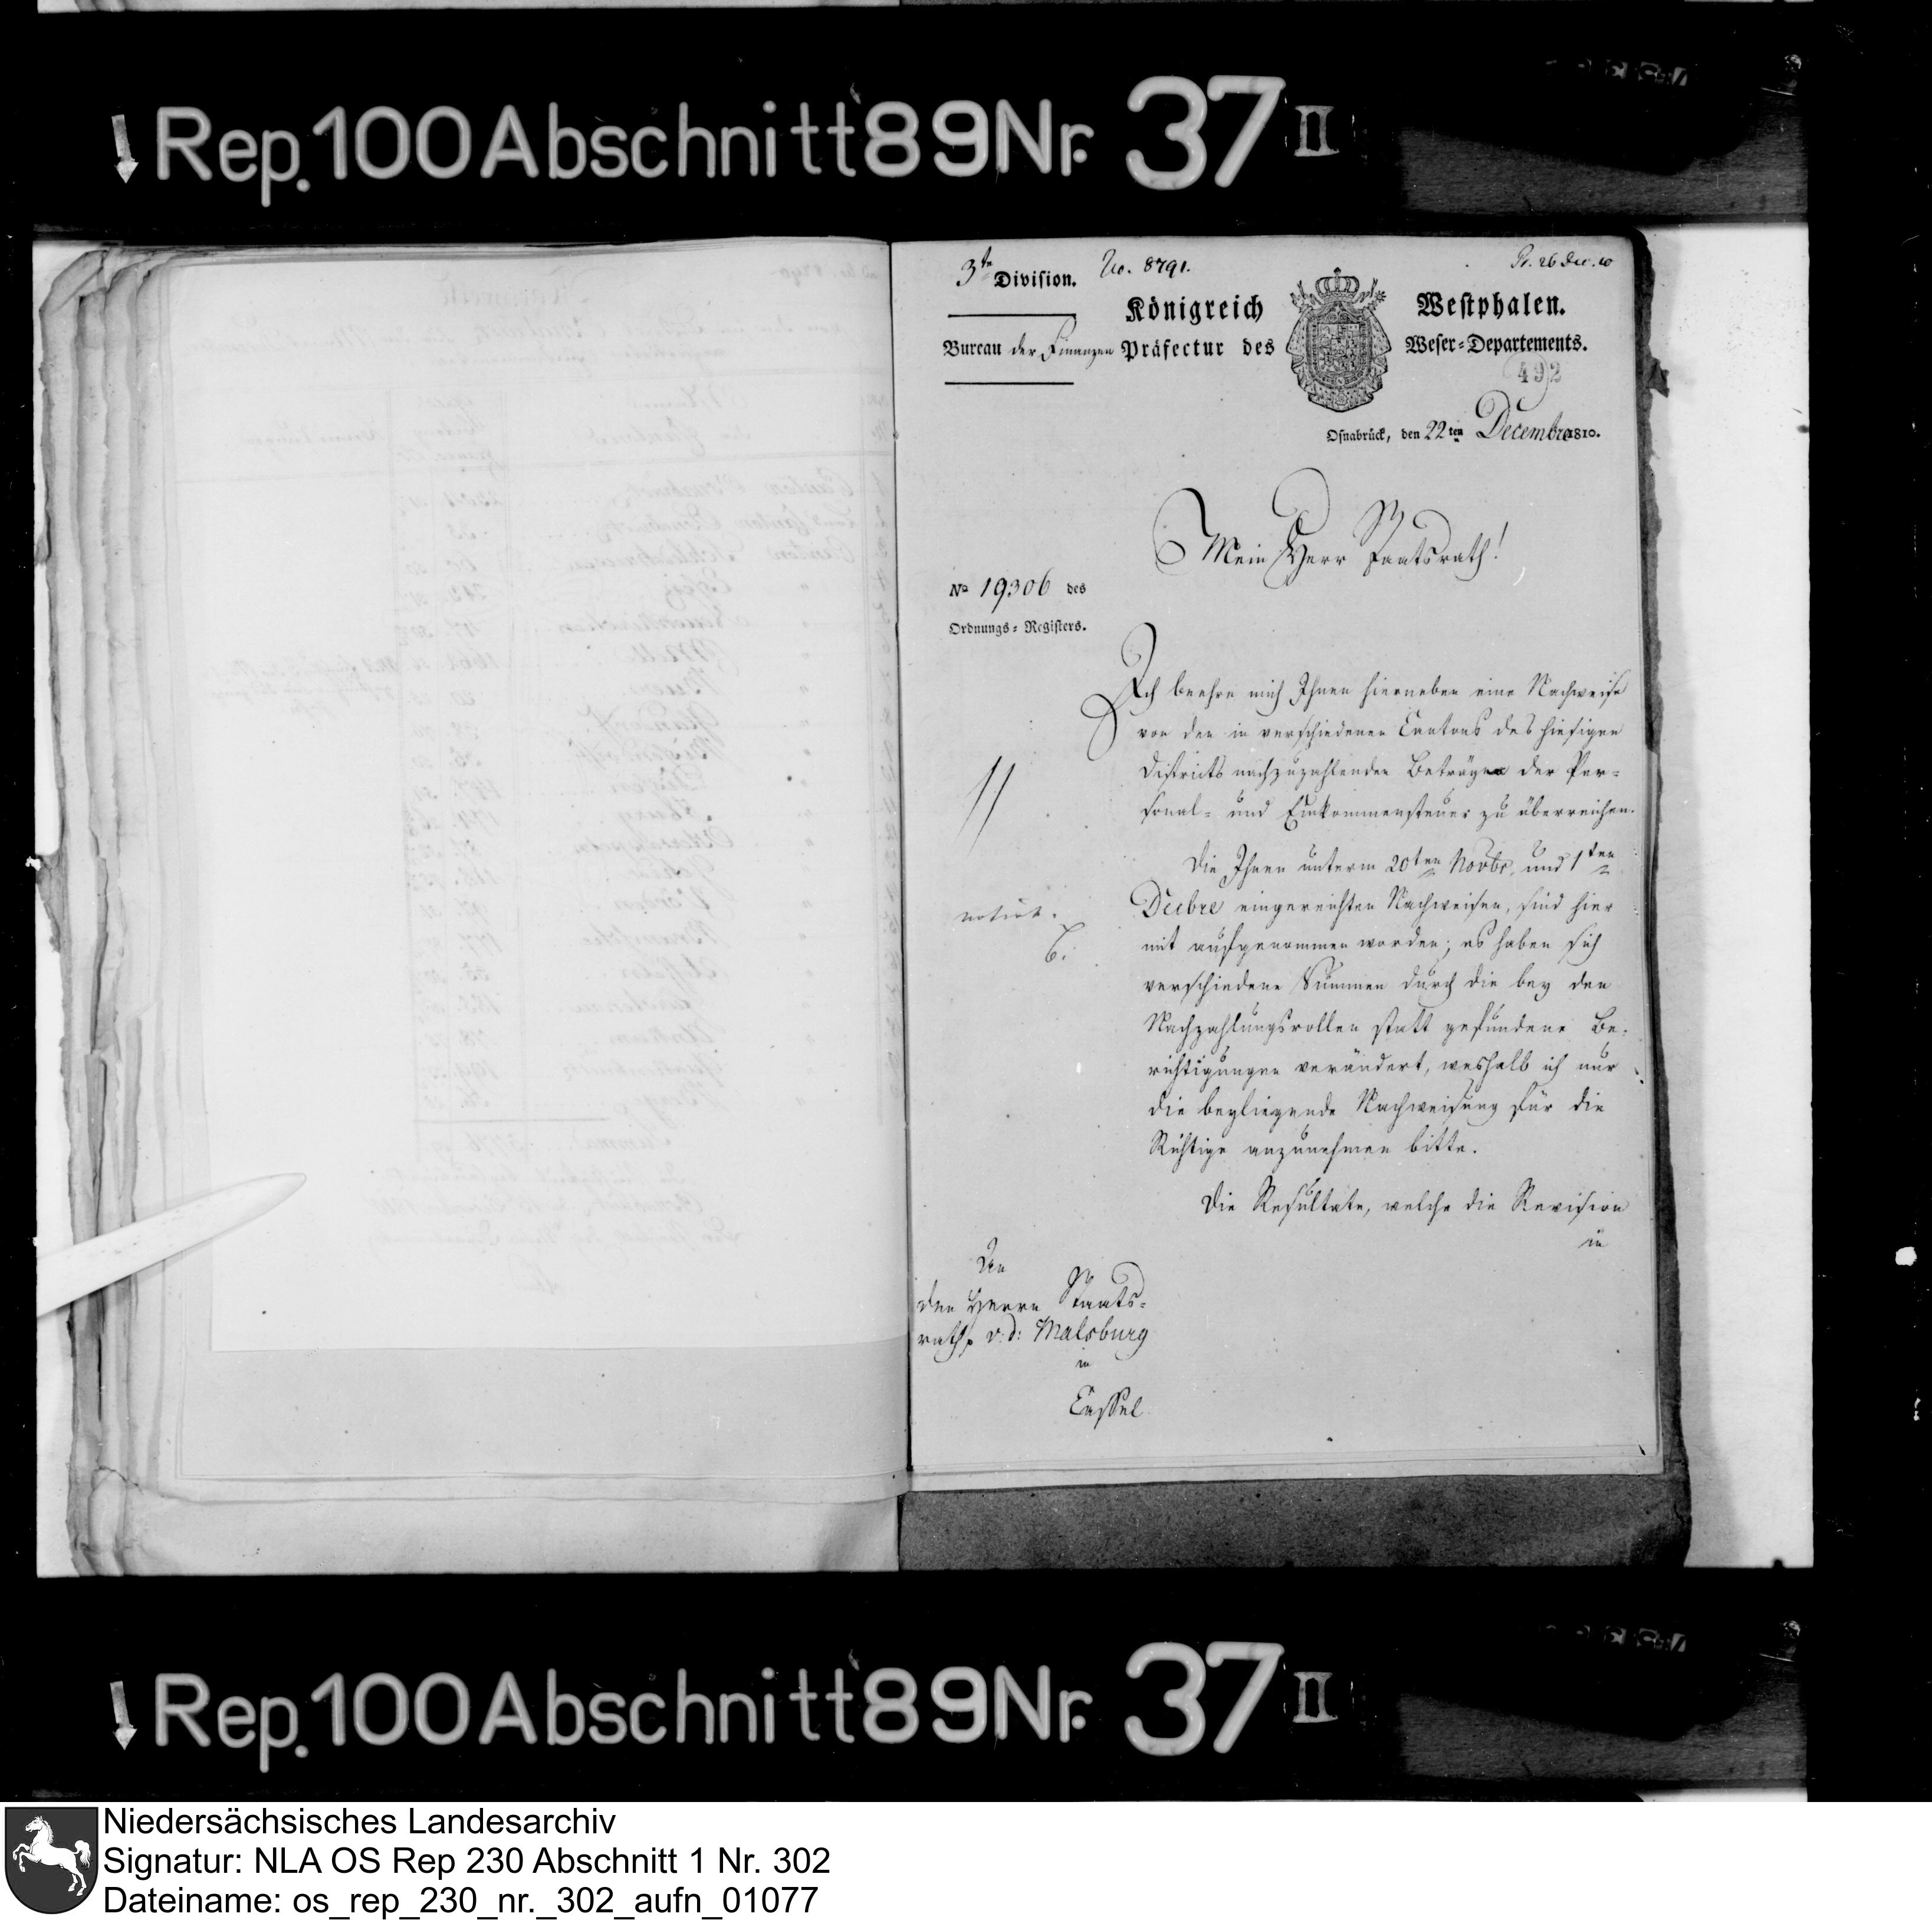 Rep. 100 Abschnitt 89 Nr. 37 II
3te Division.
No. 8791.
Pr. 26 Dec. 10
Königreich Westphalen.
Bureau der Finanzen
Präfectur des Weser-Departements.
492
Osnabrück, den 22ten Decembre 1810.
Mein Herr Staatsrath!
No 19306 des
Ordnungs-Registers.
Ich beehre mich Ihnen hierneben eine Nachweise
von den in verschiedenen Cantons des hiesigen
Districts nachzuzahlenden Beträgen der Per-
sonal- und Einkommensteuer zu überreichen.
Die Ihnen unterm 20ten Novbr. und 1ten
Decbre eingereichten Nachweisen, sind hier
mit aufgenommen worden; es haben sich
verschiedene Summen durch die bey den
Nachzahlungsrollen statt gefundene Be-
richtigungen verändert, weshalb ich nur
die beyliegende Nachweisung für die
Richtige anzunehmen bitte.
Die Resultate, welche die Revision
in
notirt.
An
den Herrn Staats-
rath v. d: Malsburg
in
Cassel
Rep. 100 Abschnitt 89 Nr. 37 II
Niedersächsisches Landesarchiv
Signatur: NLA OS Rep 230 Abschnitt 1 Nr. 302
Dateiname: os_rep_230_nr._302_aufn_01077